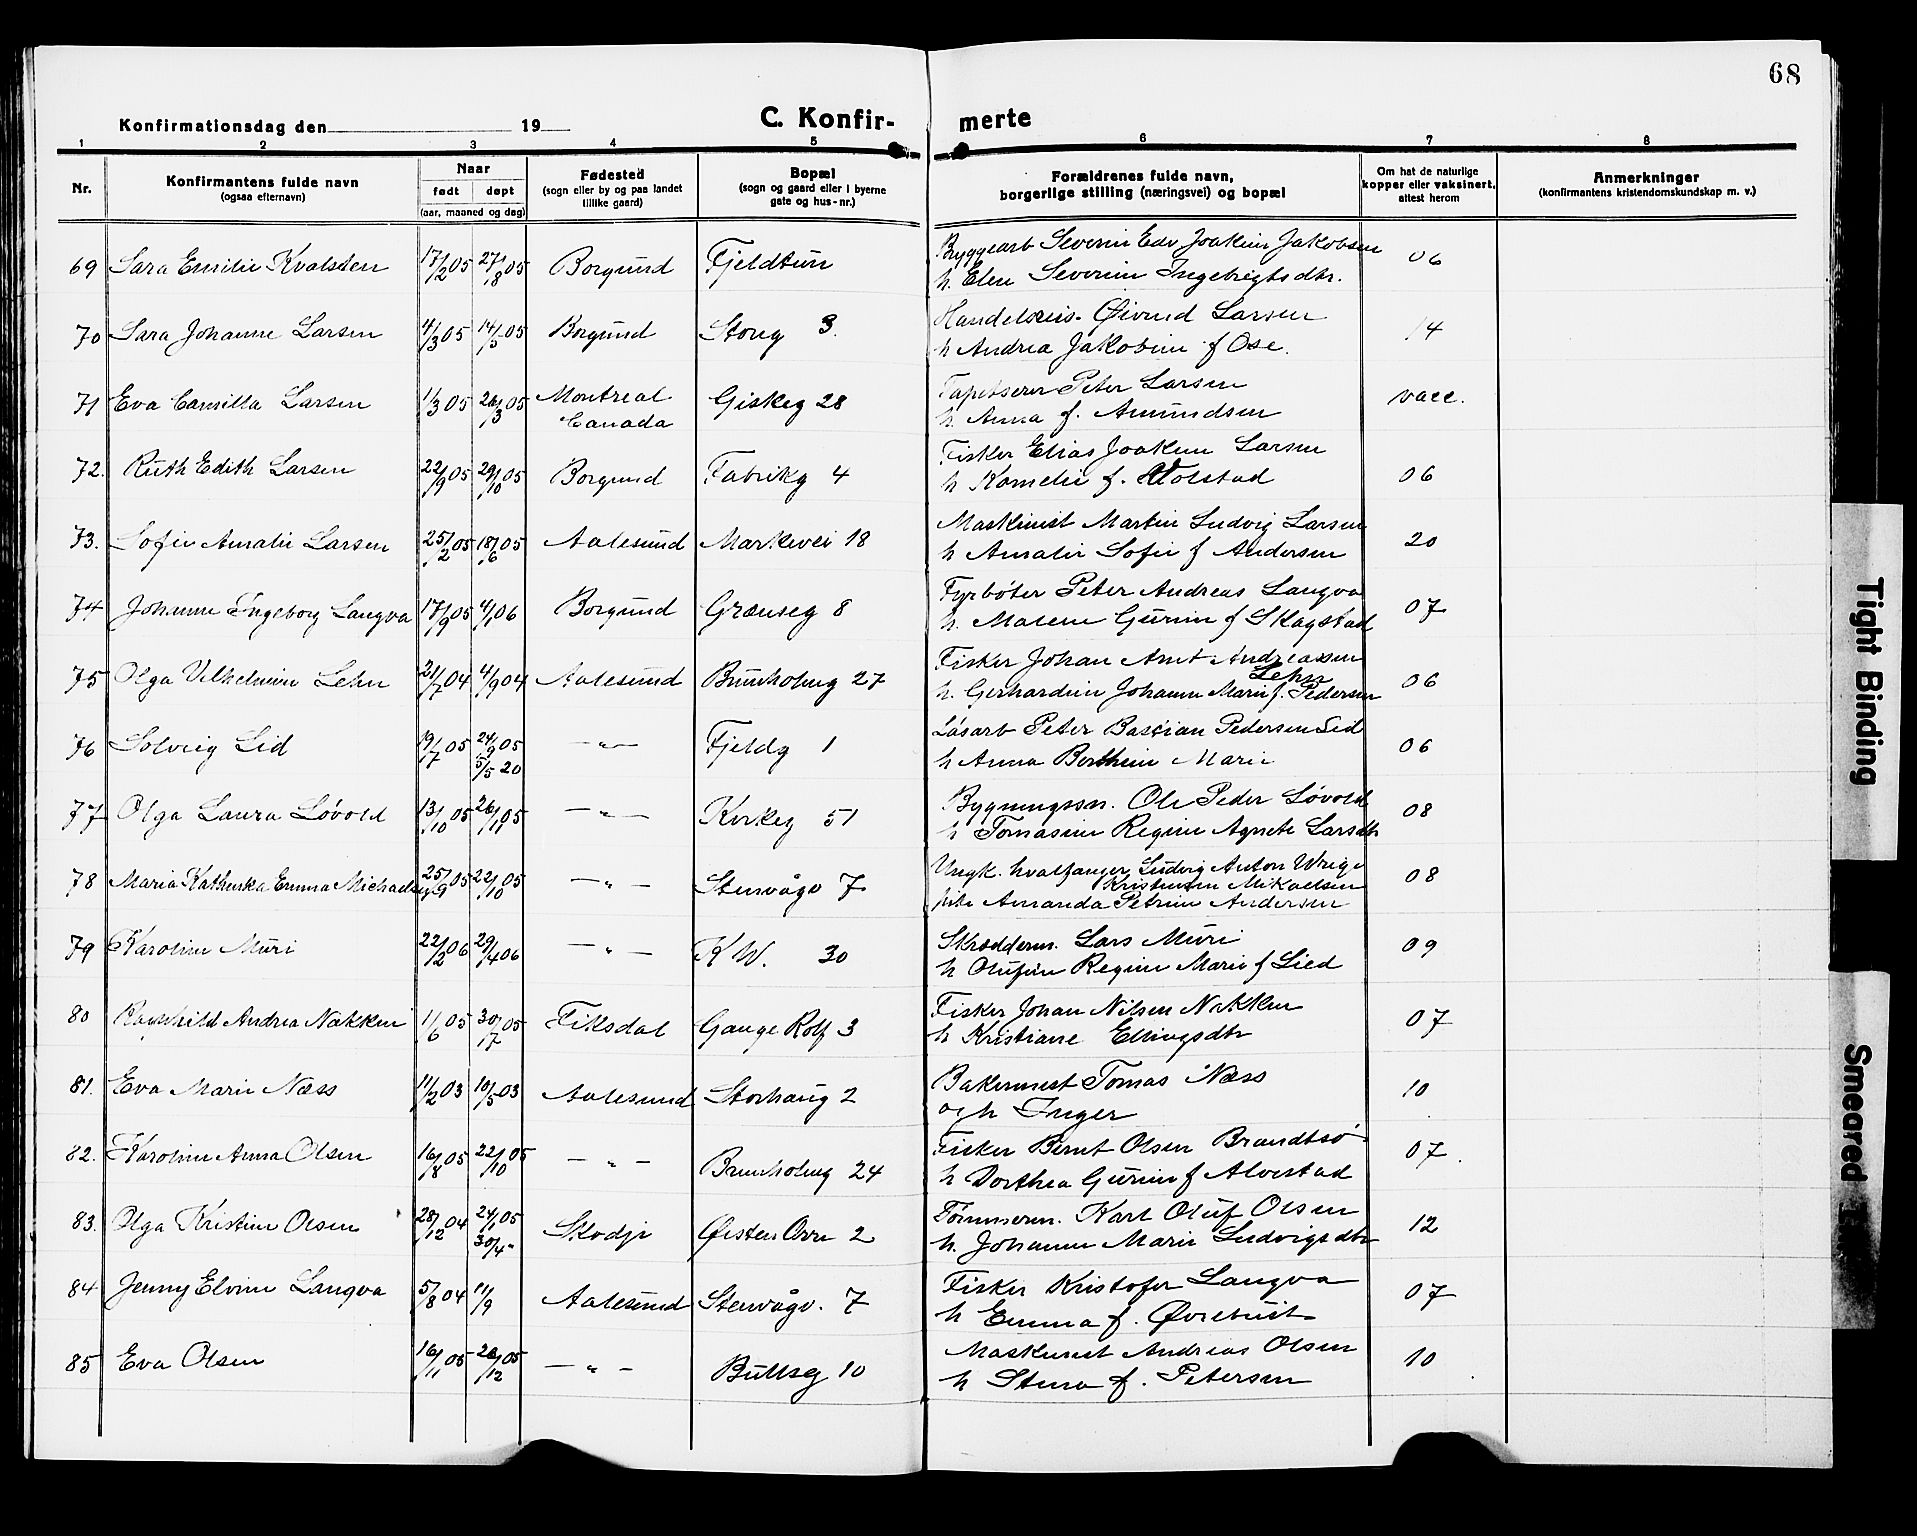 68
Konfirmationsdag den 19
C. Konfir- merte
1 2 3 4 5 6 7 8
Nr.
Konfirmantens fulde navn
(ogsaa efternavn)
Naar
født døpt
(aar, maaned og dag)
Fødested
(sogn eller by og paa landet
tillike gaard)
Bopæl
(sogn og gaard eller i byerne
gate og hus-nr.)
Forældrenes fulde navn,
borgerlige stilling (næringsvei) og bopæl
Om hat de naturlige
kopper eller vaksinert,
attest herom
Anmerkninger
(konfirmantens kristendomskundskap m. v.)
69 Sara Emilie Kvalsten 17/2 05 27/8 05 Borgund Fjeldtun Byggearb Severin Edv Joakim Jakobsen 06
h. Elen Severine Ingebrigtsdtr.
70 Sara Johanne Larsen 4/3 05 14/5 05 Borgund Storg 3. Handelsreis. Øivind Larsen 14
h Andrea Jakobine f Ose.
71 Eva Camilla Larsen 1/3 05 26/3 05 Montreal Giskeg 28 Tapetserer Peter Larsen vacc.
Canada h. Anna f. Amundsen
72. Ruth Edith Larsen 22/9 05 29/10 05 Borgund Fabrikg 4 Fisker Elias Joakim Larsen 06
h Kornelie f. Holstad
73. Sofie Amalie Larsen 25/2 05 18/6 05 Aalesund Markevei 18 Maskinist Martin Ludvig Larsen 20
h Amalie Sofie f Andersen
74 Johanne Ingeborg Langva 17/9 05 4/1 06 Borgund Grænseg 8 Fyrbøter Peter Andreas Langva 07
h. Malene Gurine f Skagstad
75 Olga Vilhelmine Lehn 21/7 04 4/9 04 Aalesund Brunholmg 27 Fisker Johan Arnt Andreassen 06
Lehn
h. Gerhardine Johanne Marie f. Pedersen
76 Solveig Lid 19/7 05 24/9 05 — " — Fjeldg 1 Løsarb Peter Bascian Pedersen Lid 06
5/5 20 h Anna Berthine Marie
77 Olga Laura Løvold 13/10 05 26/11 05 — " — Kirkeg 51 Bygningssn. Ole Peder Løvold 08
h Tomasine Regine Agnete Larsdtr
78 Maria Kathinka Emma Michaelsen 25/9 05 22/10 05 — " — Stenvågv 7 Ungk. hvalfanger Ludvig Anton Wrige 08
Kristensen Mikaelsen
pike Amanda Petrine Andersen
79 Karoline Muri 22/2 06 29/4 06 — " — K W. 30 Skrædderm. Lars Muri 09
h Olufine Regine Marie f Lied
80 Ragnhild Andrea Nakken 11/6 05 30/7 05 Fiksdal Gange Rolf 3 Fisker Johan Nilsen Nakken 07
h Kristiane Ellingsdtr
81. Eva Marie Næss 11/2 03 10/5 03 Aalesund Storhaug 2 Bakermest Tomas Næss 10
og h Inger
82. Karoline Anna Olsen 16/8 05 22/10 05 — " — Brunholmg 24 Fisker Bernt Olsen Brandtsø 07.
h Dorthea Gurine f Alvestad
83. Olga Kristine Olsen 28/12 04 24/1 05 Skodje Øisten Orre 2 Tømmerm. Karl Oluf Olsen 12
30/4 " h. Johanne Marie Ludvigsdtr
84 Jenny Elvine Langva 5/8 04 11/9 Aalesund Stenvågv. 7 Fisker Kristofer Langva 07
h Emma f. Øvrebust
85 Eva Olsen 16/11 05 26/12 05 — " — Bullsg 10 Maskinist Andreas Olsen 10
h Stina f. Petersen
Tight Binding
Smeared